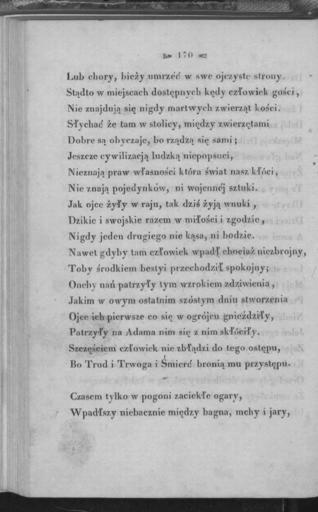 170
Lub chory, bieży umrzéć w swe ojczyste strony.
Stądto w miejscach dostępnych kędy człowiek gości,
Nie znajdują się nigdy martwych zwierząt kości.
Słychać że tam w stolicy, między zwierzętami
Dobre są obyczaje, bo rządzą się sami;
Jeszcze cywilizacją ludzką niepopsuci,
Nieznają praw własności która świat nasz kłóci,
Nie znają pojedynków, ni wojennéj sztuki.
Jak ojce żyły w raju, tak dziś żyją wnuki,
Dzikie i swojskie razem w miłości i zgodzie,
Nigdy jeden drugiego nie kąsa, ni bodzie.
Nawet gdyby tam człowiek wpadł chociaż niezbrojny,
Toby środkiem bestyi przechodził spokojny;
Oneby nań patrzyły tym wzrokiem zdziwienia,
Jakim w owym ostatnim szóstym dniu stworzenia
Ojce ich pierwsze co się w ogrójcu gnieździły,
Patrzyły na Adama nim się z nim skłóciły.
Szczęściem człowiek nie zbłądzi do tego ostępu,
Bo Trud i Trwoga i Śmierć bronią mu przystępu.
Czasem tylko w pogoni zaciekłe ogary,
Wpadłszy niebacznie między bagna, mchy i jary,